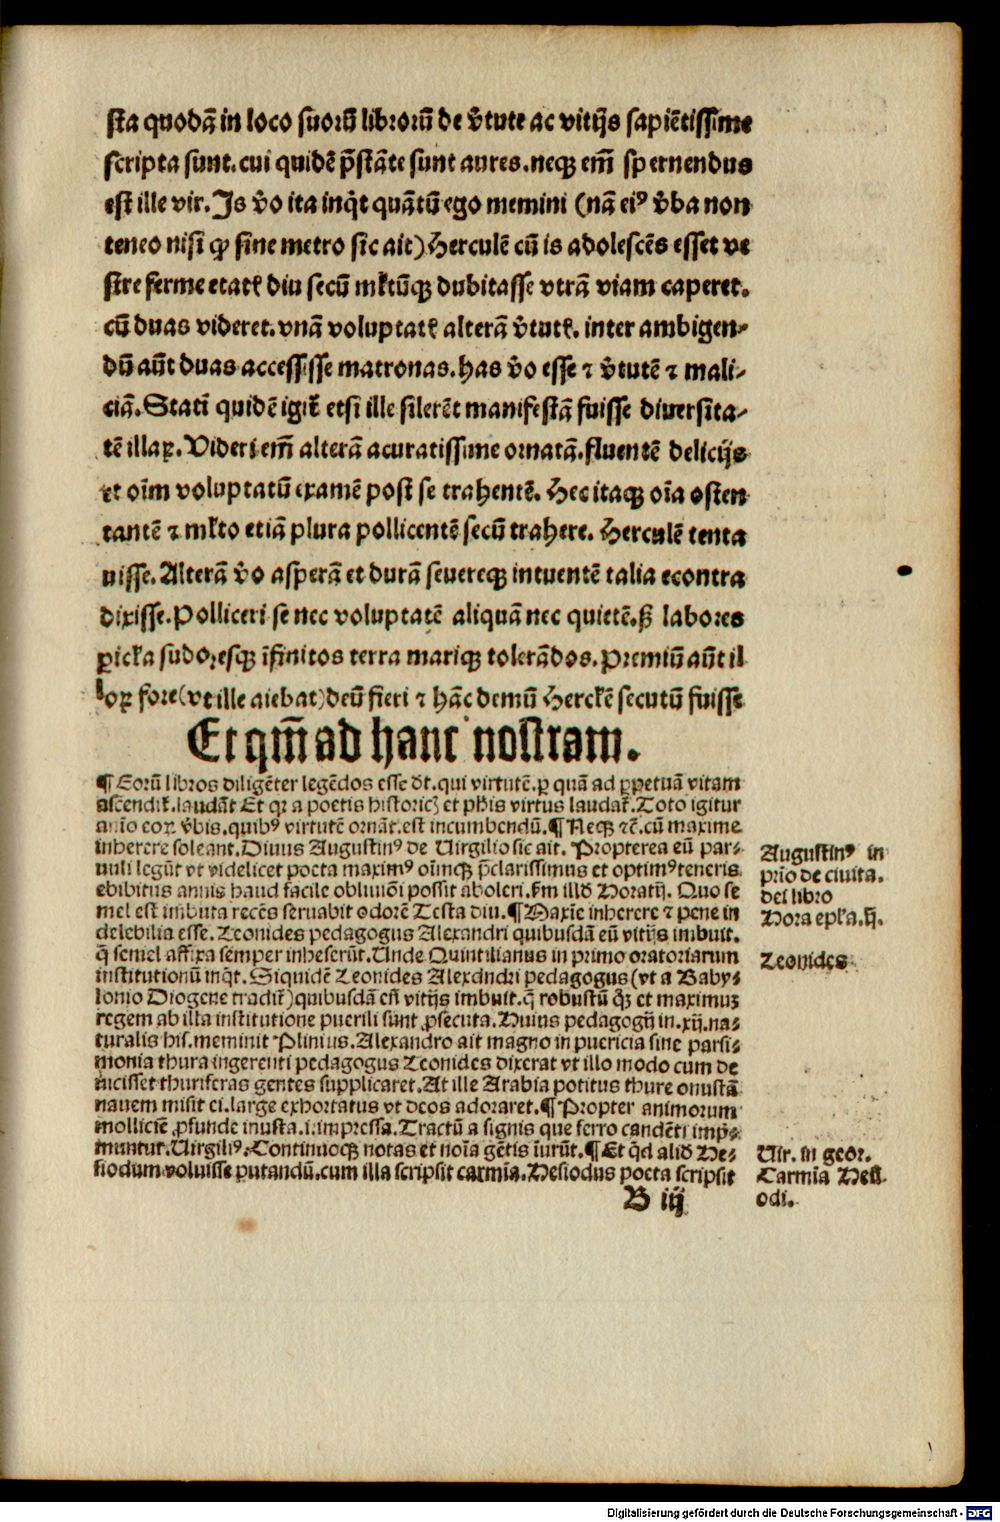 sta quodā in loco suorū librorū de v̄tute ac vitijs sapiētissime
scripta sunt. cui quidē p̄stāte sunt aures. neqꝫ em̄ spernendus
est ille vir. Is v̄o ita inq̄t quātū ego memini (nā eiꝰ v̄ba non
teneo nisi ꝙ sine metro sic ait) Herculē cū is adolescēs esset ve
stre ferme etatꝭ diu secū mltūqꝫ dubitasse vtrā viam caperet.
cū duas videret. vnā voluptatꝭ alterā v̄tutꝭ. inter ambigen-
dū aūt duas accessisse matronas. has v̄o esse ⁊ v̄tutē ⁊ mali-
ciā. Statī quidē igit̄ etsi ille silerēt manifestā fuisse diuersita-
tē illaꝝ. Videri em̄ alterā acuratissime ornatā. fluentē delicijs
et oīm voluptatū examē post se trahentē. Hec itaqꝫ oīa osten
tantē ⁊ mlto etiā plura pollicentē secū trahere. Herculē tenta
uisse. Alterā v̄o asperā et durā seuereqꝫ intuentē talia econtra
dixisse. Polliceri se nec voluptatē aliquā nec quietē. sꝫ labores
ꝑicła sudoresqꝫ īfinitos terra mariqꝫ tolerādos. Premiū aūt il
loꝝ fore (vt ille aiebat) deū fieri ⁊ hāc demū Hercłē secutū fuisse
Et qm̄ ad hanc nostram.
¶ Eorū libros diligēter legēdos esse dt. qui virtutē. ꝑ quā ad ꝑpetuā vitam
ascendit̄. laudāt Et qꝛ a poetis historicꝭ et ph̄is virtus laudat̄. Toto igitur
aīo eoꝝ v̄bis. quibꝰ virtutē ornāt. est incumbendū. ¶ Neqꝫ ⁊c̄. cū maxime
inherere soleant. Diuus Augustinꝰ de Virgilio sic ait. Propterea eū par-
uuli legūt vt videlicet poeta maximꝰ oīmqꝫ p̄clarissimus et optimꝰ teneris
ebibitus annis haud facile obliuiōi possit aboleri. Fm illḋ Horatij. Quo se
mel est imbuta recēs seruabit odorē Testa diu. ¶ Maxīe inherere ⁊ pene in
delebilia esse. Leonides pedagogus Alexandri quibusdā eū vitijs imbuit.
q̄ semel affixa semper inheserūt. Unde Quintilianus in primo oratoriarum
institutionū inq̄t. Siquidē Leonides Alexandri pedagogus (vt a Baby-
lonio Diogene tradit̄) quibusdā eū vitijs imbuit. q̄ robustū qꝫ et maximuꝫ
regem ab illa institutione puerili sunt ꝓsecuta. Huius pedagogij in. xij. na-
turalis his. meminit Plinius. Alexandro ait magno in puericia sine parsi-
monia thura ingerenti pedagogus Leonides dixerat vt illo modo cum de
uicisset thuriferas gentes supplicaret. At ille Arabia potitus thure onustā
nauem misit ei. large exhortatus vt deos adoraret. ¶ Propter animorum
molliciē ꝓfunde inusta. i. impressa. Tractū a signis que ferro candēti impri-
muntur. Virgiliꝰ. Continuoqꝫ notas et noīa gētis īurūt. ¶ Et qḋ aliḋ He-
siodum voluisse putandū. cum illa scripsit carmīa. Hesiodus poeta scripsit
Augustinꝰ in
prīo de ciuita.
dei libro
Hora epła. ij.
Leonides
Vir. in geor.
Carmīa Hesi
odi.
B iij
Digitalisierung gefördert durch die Deutsche Forschungsgemeinschaft - DFG